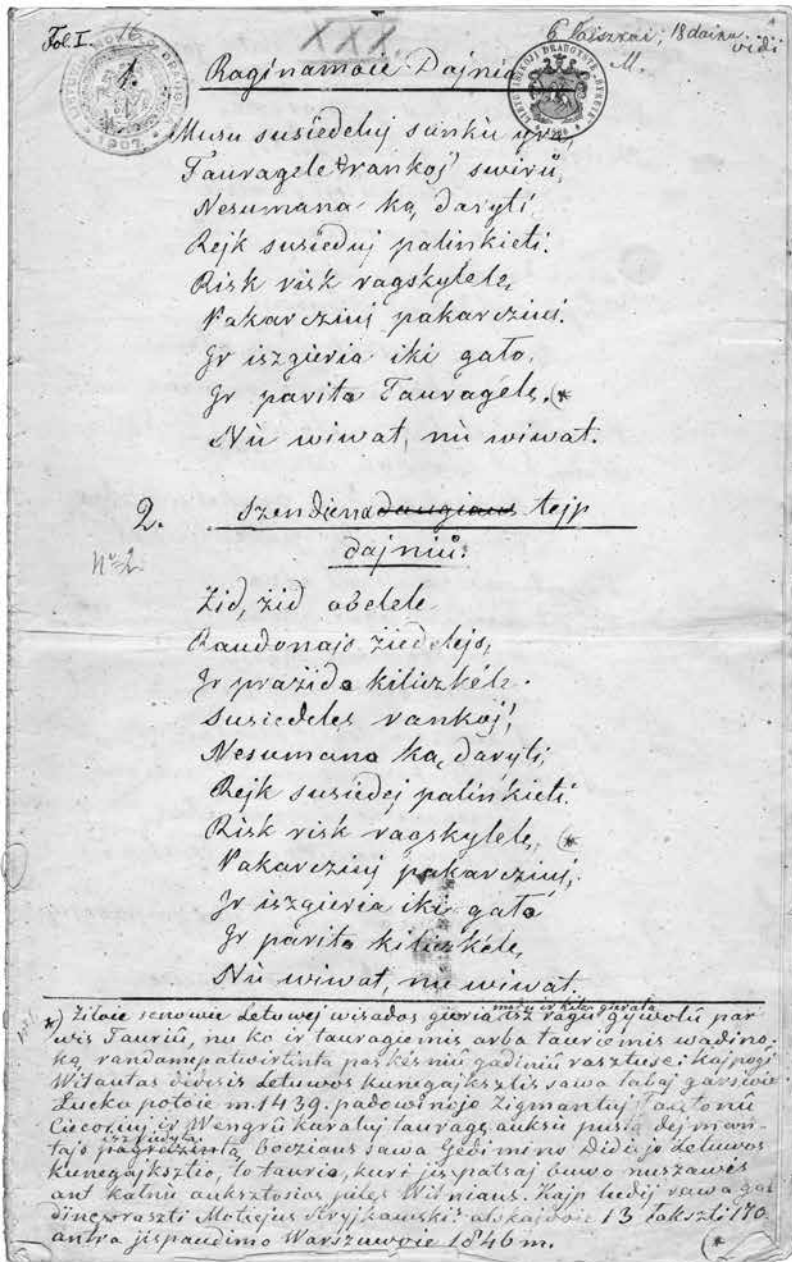 Fol. I. 16. XXX. 18 daina
1. Raginamoie Dajnia
Musu susiedeluj sunku yra,
Tauragele rankoj swirů,
Nesumana ką daryti
Rejk susieduj palinkieti.
Risk risk ragskylele,
Pakarcziuj pakarcziuj.
Jr iszgieria iki gało,
Jr parita Tauragéle. (*
Nù wiwat, nù wiwat.
2. Szendiena daugiaus tejp
dajniů:
No 2
Žid, žid obelele
Raudonajo žiedelejo,
Jr pražida kiliszkéle.
Susiedeles rankoj!
Nesumano ką daryti,
Rejk susiedej palinkieti.
Risk risk ragskylele, (*
Pakarcziuj pakarcziuj,
Jr iszgieria iki gało
Jr parita kiliszkéle,
Nù wiwat, nu wiwat.
*) Žiloie senowie Letuwej wisados gieria isz ragu gywolů par
wis Tauriů, nu ko ir tauragiemis arba tauriemis wadino;
ką randame patwirtinta par kés niů gadiniů rasztuse: Kajpogi
Witautas didesis Letuwos kunegajksztis sawa labaj garsioie
Łucko potoie m. 1439. padowinojo Zigmantuj
Ciecoriuj ir Wengrů karaluj tauragę auksu
boeziaus sawa Gedimino Didiojo Letuwos
kunegajksztio, to tauria, kuri jis patsaj buwo nuszawęs
ant kalnů auksztosios pilęs Wilniaus. Kajp ludij sawa
raszti Motiejus Stryjkauski: 13 170
antra jispaudimo Warszuwoie 1846 m.
(*